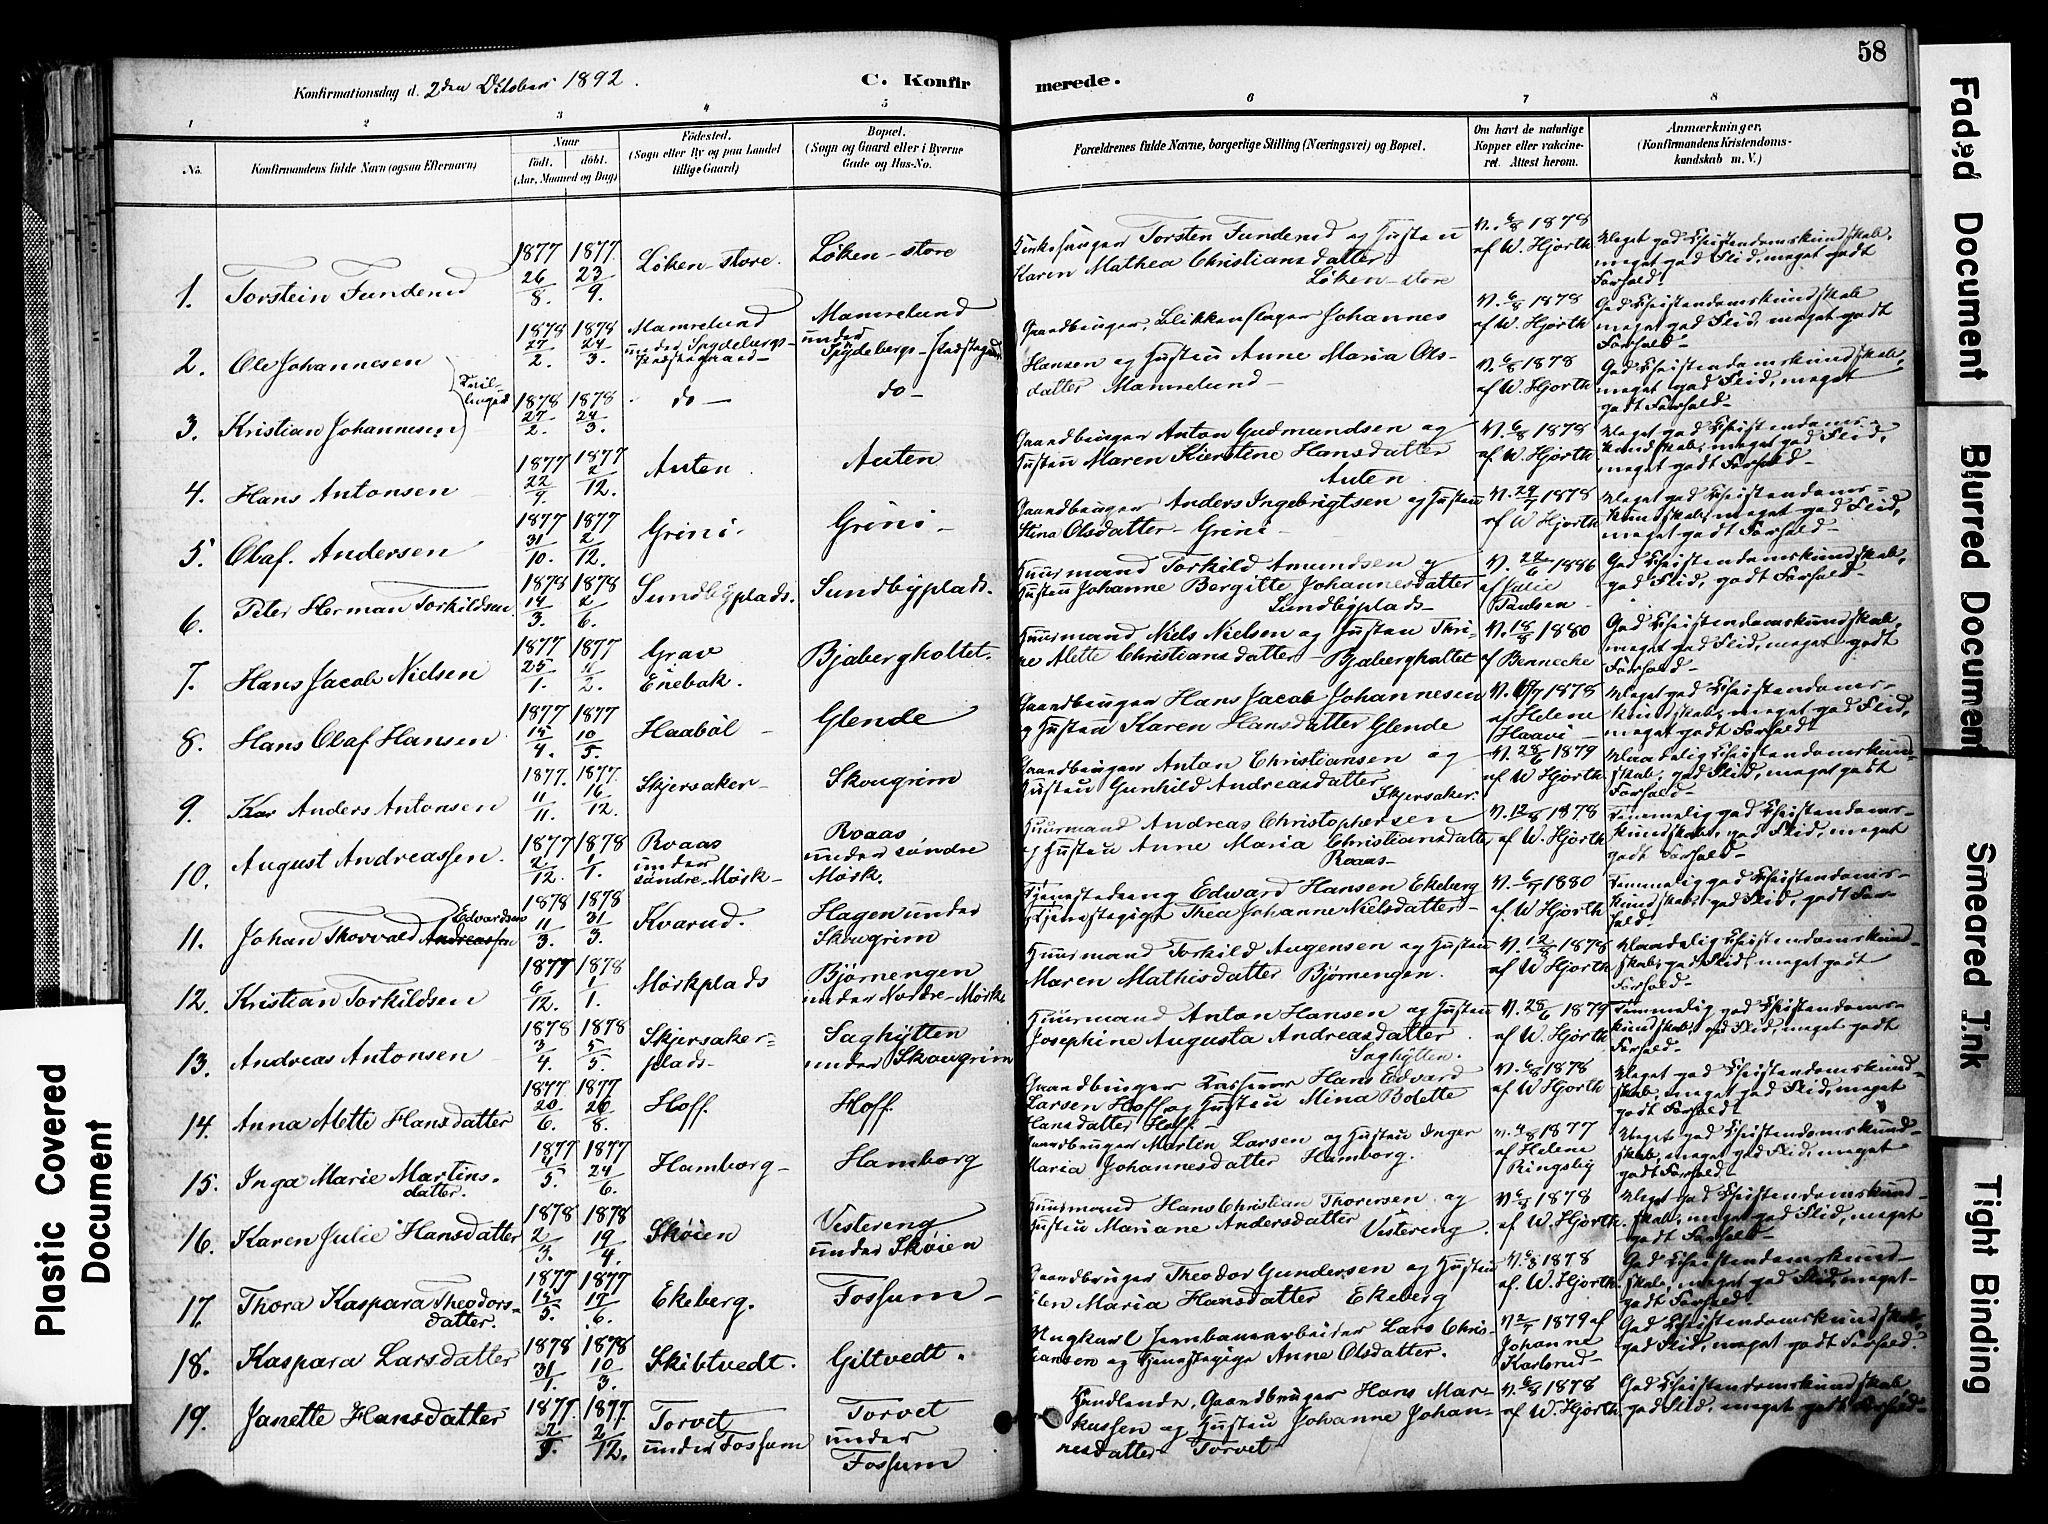 58
Konfirmationsdag d. 2den Oktober 1892.
C. Konfirmerede.
1 2 3 4 5 6 7 8
No.
Konfirmandens fulde Navn (ogsaa Efternavn)
Naar
født. døbt.
(Aar, Maaned og Dag)
Fødested.
(Sogn eller By og paa Landet
tillige Gaard)
Bopæl.
(Sogn og Gaard eller i Byerne
Gade og Hus-No.
Forældrenes fulde Navne, borgerlige Stilling (Næringsvei) og Bopæl.
Om havt de naturlige
Kopper eller vakcine-
ret. Attest herom.
Anmærkninger.
(Konfirmandens Kristendoms-
kundskab m. V.)
1. Torstein Fundenud
1877 26/8. 1877. 23/9.
Løken-store.
Løken-store
Kirkesanger Torsten Fundenud og Hustru
Karen Mathea Christiansdatter.
Løken-store
V. 6/8 1878
af W. Hjorth
Meget god Christendomskundskab,
meget god Flid, meget godt
Forhold.
2. Ole Johannesen
Tvil-
linger
1878 27/2. 1878 24/3.
Mamrelund
under Spydebergs-
Præstegaard-
Mamrelund
under
Spydebergs-Præstegaard
Gaardbruger, Blikkenslager Johannes
Hansen og Hustru Anne Maria Ols-
datter Mamrelund-
V. 6/8 1878
af W. Hjorth
God Christendomskundskab
meget god Flid, meget godt
Forhold-
3. Kristian Johannesen
1878 27/2. 1878 24/3.
do-
do-
V. 6/8 1878
af W. Hjorth
God Christendomskundskab,
meget god Flid, meget
godt Forhold-
4. Hans Antonsen
1877 22/9. 1877 2/12.
Auten.
Auten
Gaardbruger Anton Gudmundsen og
Hustru Maren Kierstine Hansdatter
Auten.
V. 6/8 1878
af W. Hjorth
Meget god Christendoms-
kundskab, meget god Flid,
meget godt Forhold-
5. Olaf. Andersen
1877 31/10. 1877 2/12.
Grini.
Grini-
Gaardbruger Anders Ingebrigtsen og Hustru
Stina Olsdatter- Grini-
V. 29/7 1878
af W Hjorth
Meget god Christendoms-
kundskab, meget god Flid,
meget godt Forhold-
6. Peter Herman Torkildsen
1878 14/3. 1878 2/6.
Sundbyplads.
Sundbyplads.
Huusmand Torkild Amundsen og
Hustru Johanne Bergitte Johannesdatter
Sundbyplads-
V. 22/6 1886
af Julie
Paulsen-
God Christendomskundskab,
god Flid, godt Forhold-
7. Hans Jacob Nielsen
1877 25/1. 1877
Grav
Enebak.
Bjabergholtet.
Huusmand Niels Nielsen og Hustru Thri-
ne Mette Christiansdatter- Bjabergholtet
V. 18/8 1880
af Bennecke
God Christendomskundskab,
meget god Flid, meget godt
Forhold-
8. Hans Olaf Hansen
1877 15/4. 1877 10/5.
Haabøl-
Glende
Gaardbruger Hans Jacob Johannesen
og Hustru Karen Hansdatter Glende
af Helene
Haavi-
Meget god Christendoms-
kundskab, meget god Flid,
meget godt Forhold.
9. Anders Antonsen
1877. 11/11. 1877. 16/12.
Skjersaker-
Skougrim
Gaardbruger Anton Christiansen og
Hustru Gunhild Andreasdatter
Skjersaker.
V. 28/6 1879
af W Hjorth
Maadelig Christendomskund-
skab, god Flid, meget godt
Forhold-
10. August Andreassen.
1877 2/12. 1878 1/1.
Roaas
under
søndre-Mørk-
Roaas
under søndre
Mørk.
Huusmand Andreas Christophersen
og Hustru Anne Maria Christiansdatter
Roaas-
V. 12/8 1878
af W. Hjorth
Temmelig god Christendoms-
kundskab, god Flid, meget
godt Forhold-
11. Johan Thorvald Andreassen Edvardsen
1878 11/3. 1878 31/3.
Kvarud.
Hagen under
Skougrim
Tjenestedreng Edward Hansen Ekeberg
Tjenestepige Thea Johanne Nielsdatter-
1880
af W Hjorth
Temmelig god Christendoms-
kundskab, god Flid, godt For-
hold-
12. Kristian Torkildsen
1877 6/12. 1878 1/1.
Mørkplads
Bjørnengen
under Nordre-Mørk
Huusmand Torkild Augensen og Hustru
Maren Mathisdatter Bjørnengen.
V. 12/8 1878
af W Hjorth.
Maadelig Christendomskund-
skab, god Flid, meget godt
Forhold-
13. Andreas Antonsen
1878 3/4. 1878 5/5.
Skjersaker-
plads-
Saghytten
under Skougrim
Huusmand Anton Hansen og Hustru
Josephine Augusta Andreasdatter
Saghytten.
V. 28/6 1879
af W. Hjorth
Temmelig god Christendoms-
kundskab, god Flid, meget godt
Forhold-
14. Anna Mette Hansdatter
1877 20/6. 1877 26/8.
Hoff.
Hoff.
Gaardbruger Kasserer Hans Edvard
Larsen Hoff og Hustru Mina Bolette
Hansdatter Hoff.-
V. 6/8 1878
af W Hjorth
Meget god Christendomskund-
skab, meget god Flid, meget
godt Forhold
15. Inga Marie Martins-
datter.
1877 4/5. 1877 24/6.
Hamborg-
Hamborg
Gaardbruger Martin Larsen og Hustru Inger
Maria Johannesdatter Hamborg.
1877
af Helene
Ringsby
Meget god Christendomskund-
skab, meget god Flid, meget
godt Forhold-
16. Karen Julie Hansdatter
1878 2/3. 1878 19/4.
Skøien
Vestereng
under Skøien
Huusmand Hans Christian Thoresen og
Hustru Mariane Andersdatter Vestereng.
V. 6/8 1878
af W. Hjorth.
Meget god Christendomskund-
skab, meget god Flid, meget
godt Forhold-
17. Thora Kaspara Theodors-
datter.
1877 15/5. 1877 17/6.
Ekeberg.
Fossum-
Gaardbruger Theodor Gundersen og Hustru
Elen Maria Hansdatter Ekeberg
V. 6/8 1878
af. W. Hjorth.
God Christendomskund-
skab, meget god Flid, meget
godt Forhold-
18. Kaspara Larsdatter
1878 31/1. 1878 10/3.
Skibtvedt.
Giltvedt.
Ungkarl Jernbanearbeider Lars Chris-
tiansen og Tjenestepige Anne Olsdatter.
1879 af
Johanne
Karlsrud-
God Christendomskundskab,
god Flid, meget godt Forhold.
19. Janette Hansdatter
1877 1877. 2/12.
Torvet
under Fossum
Torvet
under
Fossum
Handlende, Gaardbruger Hans Mar-
kussen og Hustru Johanne Johan-
nesdatter Torvet-
V. 6/8 1878
af W. Hjorth.
God Christendomskundskab
god Flid, meget godt Forhold-
Plastic Covered
Document
Faded Document
Blurred Document
Smeared Ink
Tight Binding